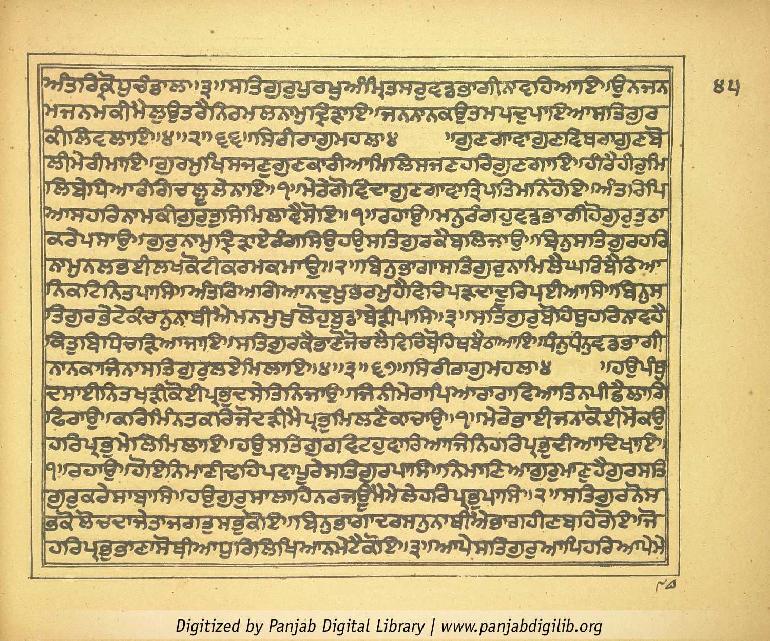 ਅੰਤਰਿਕ੍ਰੋਧੁਚੰਡਾਲਾ॥੩॥ਸਤਿਗੁਰੁਪੁਰਖੁਅੰਮ੍ਰਿਤਸਰੁਵਡਭਾਗੀਨਾਵਹਿਆਇ॥ਉਨਜਨ ੪੫
ਮਜਨਮਕੀਮੈਲੁਉਤਰੈਨਿਰਮਲਨਾਮੁਦ੍ਰਿੜਾਇ॥ਜਨਨਾਨਕਉਤਮਪਦੁਪਾਇਆਸਤਿਗੁਰ
ਕੀਲਿਵਲਾਇ॥੪॥੨॥੬੬॥ਸਿਰੀਰਾਗੁਮਹਲਾ੪ ॥ਗੁਣਗਾਵਾਗੁਣਵਿਥਰਾਗੁਣਬੋ
ਲੀਮੇਰੀਮਾਇ॥ਗੁਰਮੁਖਿਸਜਣੁਗੁਣਕਾਰੀਆਮਿਲਿਸਜਣਹਰਿਗੁਣਗਾਇ॥ਹੀਰੈਹੀਰੁਮਿ
ਲਿਬੇਧਿਆਰੰਗਿਚਲੂਲੈਨਾਇ॥੧॥ਮੇਰੇਗੋਵਿੰਦਾਗੁਣਗਾਵਾਤ੍ਰਿਪਤਿਮਨਿਹੋਇ॥ਅੰਤਰਿਪਿ
ਆਸਹਰਿਨਾਮਕੀਗੁਰੁਤੁਸਿਮਿਲਾਵੈਸੋਇ॥੧॥ਰਹਾਉ॥ਮਨੁਰੰਗਹੁਵਡਭਾਗੀਹੋਗੁਰੁਤੁਠਾ
ਕਰੇਪਸਾਉ॥ਗੁਰੁਨਾਮੁਦ੍ਰਿੜਾਏਰੰਗਸਿਉਹਉਸਤਿਗੁਰਕੈਬਲਿਜਾਉ॥ਬਿਨੁਸਤਿਗੁਰਹਰਿ
ਨਾਮੁਨਲਭਈਲਖਕੋਟੀਕਰਮਕਮਾਉ॥੨॥ਬਿਨੁਭਾਗਾਸਤਿਗੁਰੁਨਾਮਿਲੈਘਰਿਬੈਠਿਆ
ਨਿਕਟਿਨਿਤਪਾਸਿ॥ਅੰਤਰਿਅਗਿਆਨਦੁਖੁਭਰਮੁਹੈਵਿਚਿਪੜਦਾਦੂਰਿਪਈਆਸਿ॥ਬਿਨੁਸ
ਤਿਗੁਰਭੇਟੇਕੰਚਨੁਨਾਥੀਐਮਨਮੁਖੁਲੋਹੁਬੂਡਾਬੇੜੀਪਾਸਿ॥੩॥ਸਤਿਗੁਰੁਬੋਹਿਥੁਹਰਿਨਾਵਹੈ
ਕਿਤੁਬਿਧਿਚੜਿਆਜਾਇ॥ਸਤਿਗੁਰਕੈਭਾਣੈਜੋਚਲੈਵਿਚਿਬੋਹਿਥਬੈਠਾਆਇ॥ਧੰਨੁਧੰਨੁਵਡਭਾਗੀ
ਨਾਨਕਾਜਿਨਾਸਤਿਗੁਰੁਲਏਮਿਲਾਇ॥੪॥੩॥੬੭॥ਸਿਰੀਰਾਗੁਮਹਲਾ੪ ॥ਹਉਪੰਥੁ
ਦਸਾਈਨਿਤਖੜੀਕੋਈਪ੍ਰਭੁਦਸੇਤਿਨਿਜਾਉ॥ਜਿਨੀਮੇਰਾਪਿਆਰਾਰਾਵਿਆਤਿਨਪੀਛੈਲਾਗਿ
ਫਿਰਾਉ॥ਕਰਿਮਿੰਨਤਿਕਰਿਜੋਦੜੀਮੈਪ੍ਰਭੁਮਿਲਣੈਕਾਚਾਉ॥੧॥ਮੇਰੇਭਾਈਜਨਾਕੋਈਮੋਕਉ
ਹਰਿਪ੍ਰਭੁਮੇਲਿਮਿਲਾਇ॥ਹਉਸਤਿਗੁਰਵਿਟਹੁਵਾਰਿਆਜਿਨਿਹਰਿਪ੍ਰਭੁਦੀਆਦਿਖਾਇ॥
੧॥ਰਹਾਉ॥ਹੋਇਨਿਮਾਣੀਢਹਿਪਵਾਪੂਰੇਸਤਿਗੁਰਪਾਸਿ॥ਨਿਮਾਣਿਆਗੁਰੁਮਾਣੁਹੈਗੁਰਸਤਿ
ਗੁਰੁਕਰੇਸਾਬਾਸਿ॥ਹਉਗੁਰੁਸਾਲਾਹਿਨਰਜਊਮੈਮੇਲੇਹਰਿਪ੍ਰਭੁਪਾਸਿ॥੨॥ਸਤਿਗੁਰਨੋਸ
ਭਕੋਲੋਚਦਾਜੇਤਾਜਗਤੁਸਭੁਕੋਇ॥ਬਿਨੁਭਾਗਾਦਰਸਨੁਨਾਥੀਐਭਾਗਹੀਣਬਹਿਰੋਇ॥ਜੋ
ਹਰਿਪ੍ਰਭੁਭਾਣਾਸੋਥੀਆਧੁਰਿਲਿਖਿਆਨਮੇਟੈਕੋਇ॥੩॥ਆਪੇਸਤਿਗੁਰੁਆਪਿਹਰਿਆਪੇਮੇ
Digitized by Panjab Digital Library | www.panjabdigilib.org